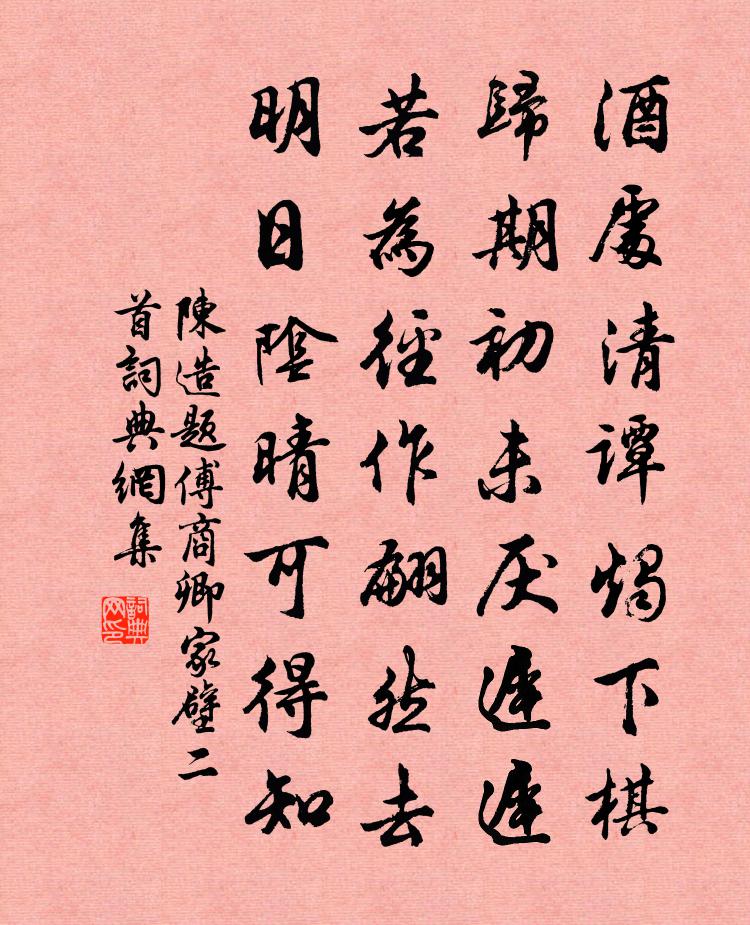 酒處清譚燭下棋
歸期初未厌遲遲
若為徑作翩然去
明日陰晴可得知
陳造题傅商卿家壁二
首詞典網集
詞典網印